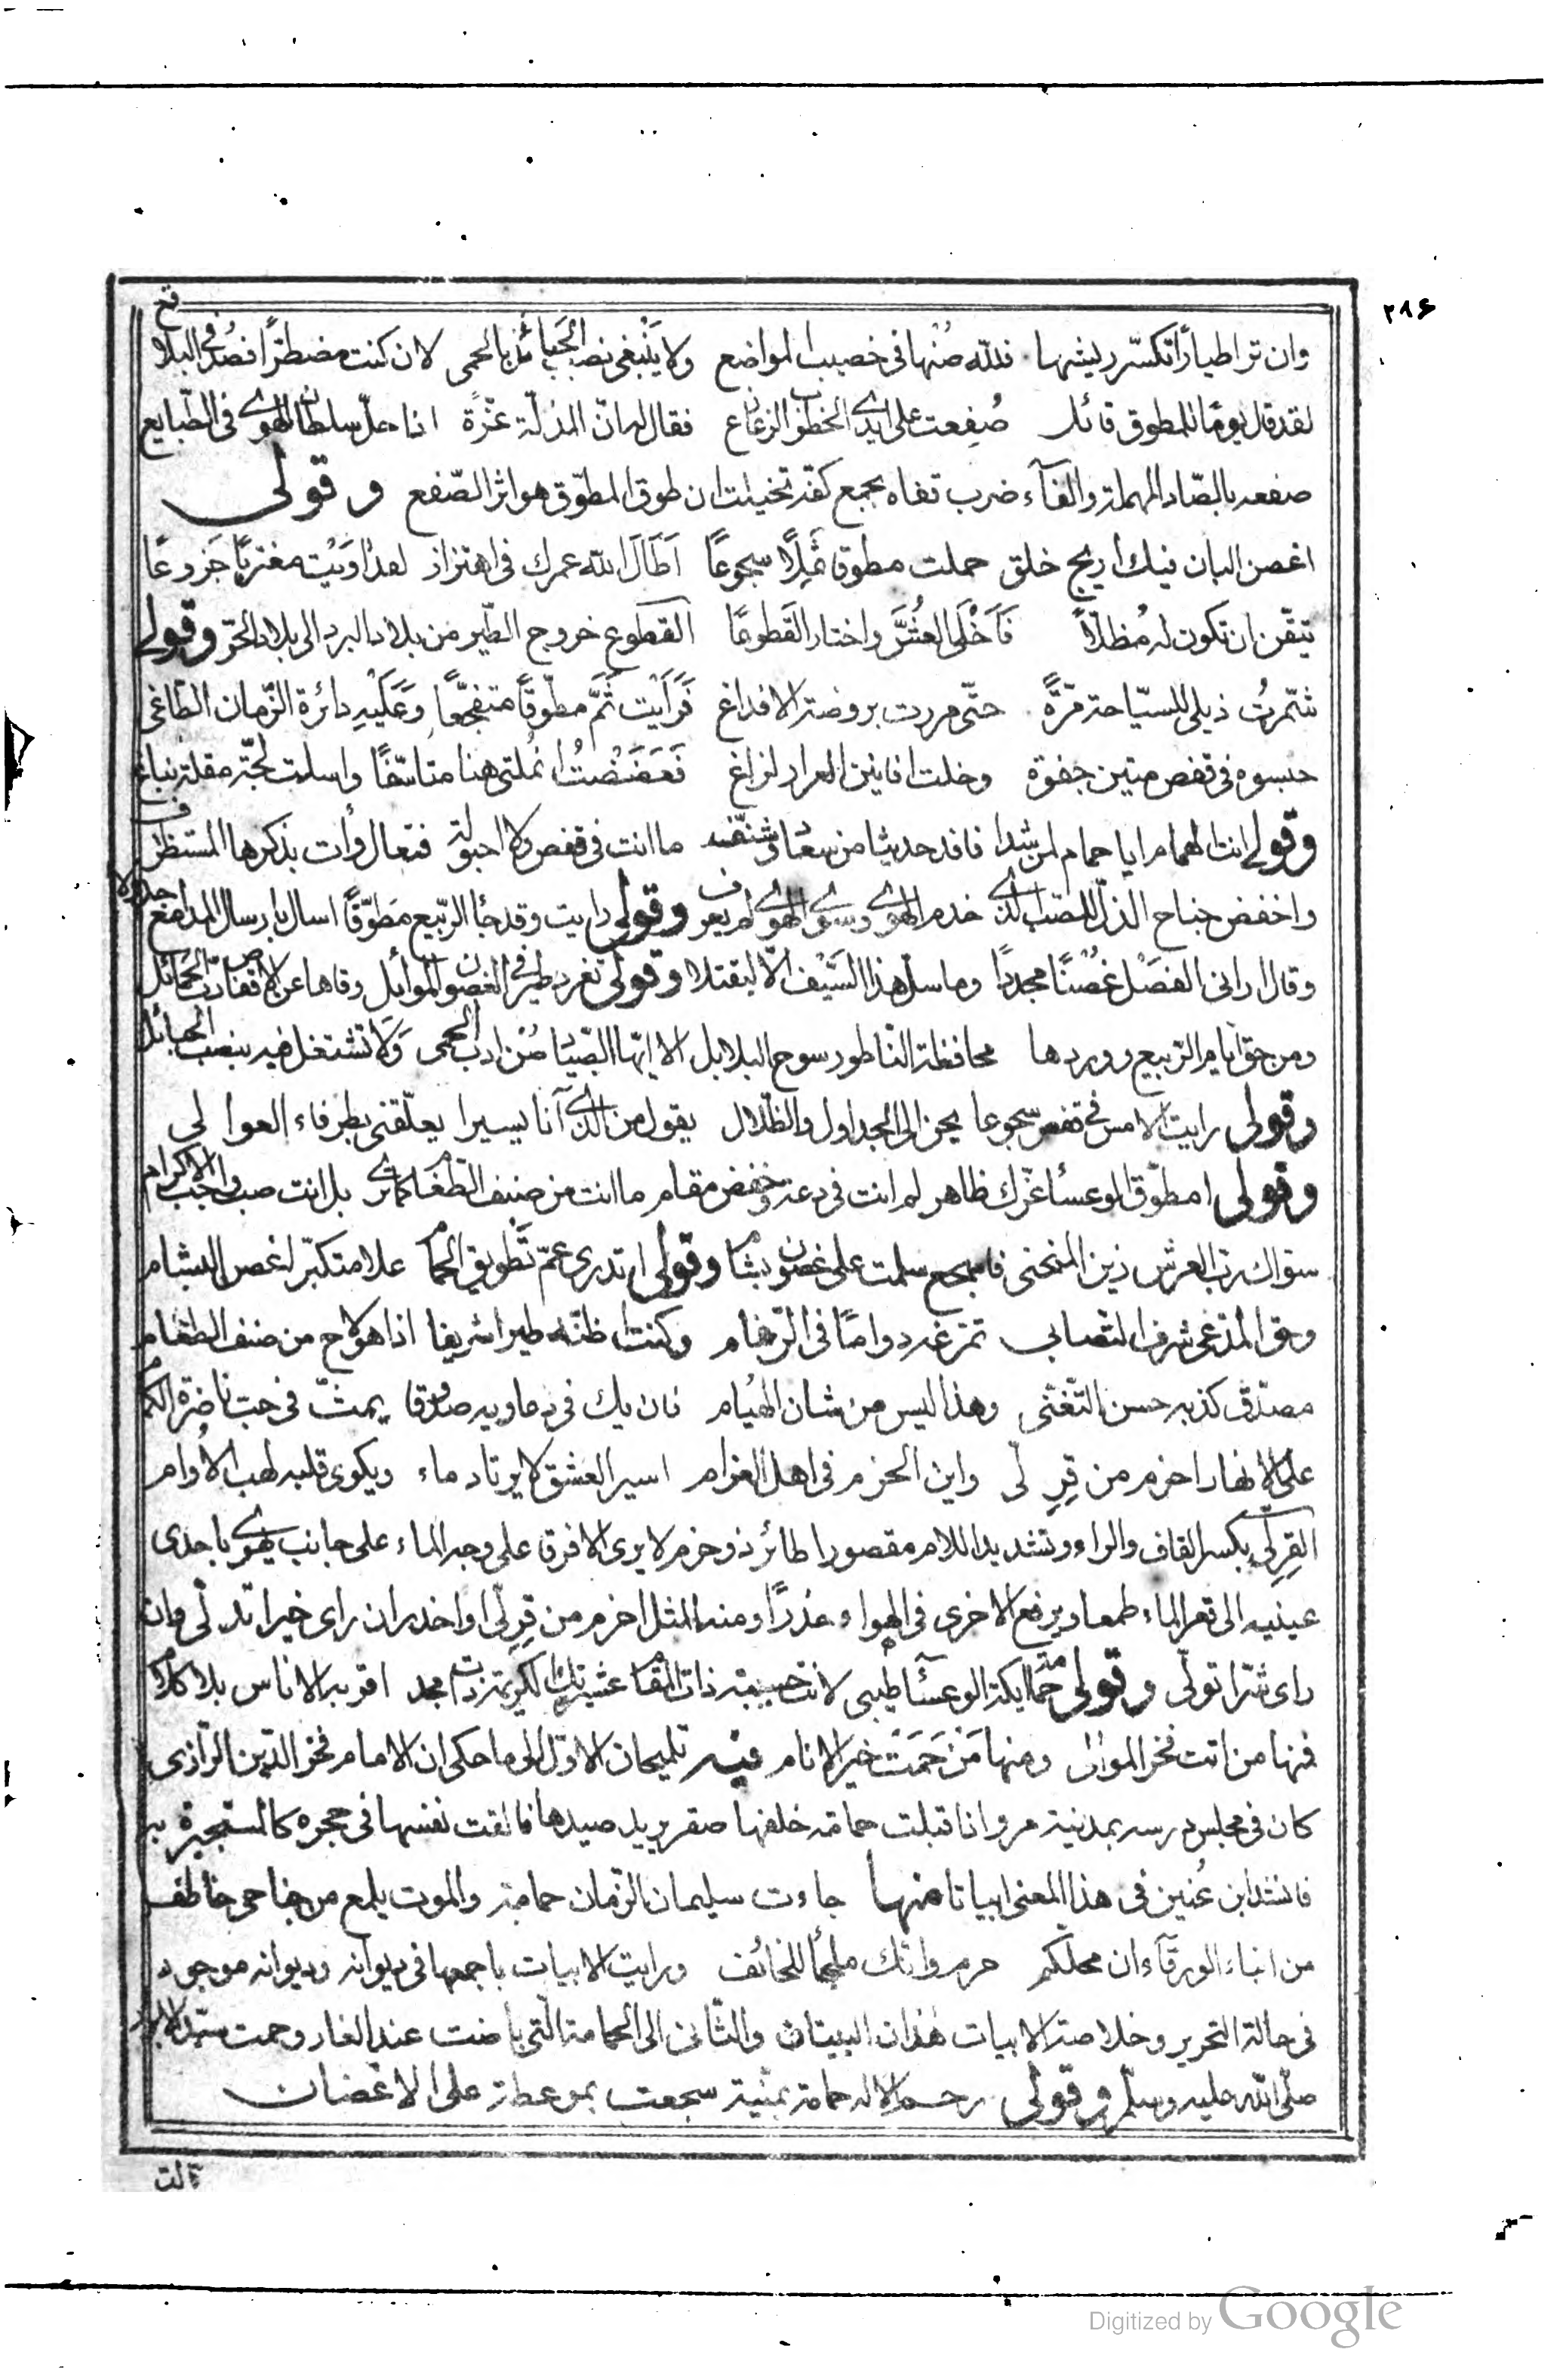 ٢٨٤
وان تر اطيارا تكسّر ريشها فللّه صُنها فى خصيب المواضع ولا ينبغى نصب الحبائل بالحمى لان كنت مضطرّا فصُد فى البلا
لقد قال يومًا للمطوق قائل صُفِعت على ايدى الخطوب الزعازع فقال لهان المذلّة عزّة اذا حلّ سلطان الهوى فى الطّبايع
صفعه بالصّاد المهملة والفآء ضرب قفاه بجمع كفه تخيلت ان طوق المطوّق هو اثر الصّفع وقولى
اغصن البان فيك اريج خلق حملت مطوقا ثَمِلًا سجوعًا اَطَالَ الله عمرك فى اهتزاز لقد اوَيْت مغتربًا جَزوعًا
تيقن ان تكون له مُظلّاً فَاَخْلَى العُشَّ واختار القَطوعًا القطوع خروج الطّير من بلاد البرد الى بلاد الحرّ وقولى
شمّرتُ ذيلى للسيّاحة مَرّةً حتّى مررت بروضة الافداغ فَرَأيْت ثَمَّ مطوّقاً متفجّعا وَعَلَيْهِ دائرة الزّمان الطّاغى
حبسوه فى قفص متين جفوة وخلت افانين العرار لزاغ فَعَضَضْتُ اُنمُلتى هنا متاسّفًا واسلت لجّة مقلة نباغ
وقولى انت الهمام ايا حمام لمن شدا فافد حديثا من سعاد وشنّف ما انت فى قفص ولا احبولة فتعال وأت بذكرها المستظرف
واخفض جناح الذلّ للصّب الذى خدم الهوى وسوى الهوى لم يعرف وقولى رايت وقد جأ الرّبيع مطوّقًا اسال بارسال المدامع جدولا
وقال ارانى الفصْل غُصْنًا مجددًا وما سلّ هذا السّيْف الّا ليقتلا وقولى تغرد طير فى الغصون الموايل وقاها عن الاقفاص ربّ الحمائل
ومن حق ايام الرّبيع ووردها محافظة الناطور سوح البلابل الا ايّها الصّيّاد صُن ادب الحمى وَلا تشتغل فيه بنصب الحبائل
وقولى رايت الامس فى قفص سجوعا يحن الى الجداول والظّلال يقول من الذى آنا يسيرا يعلّقنى بطرفاء العوالى
وقولى امطوّق الوعسأ عزّك ظاهر لم انت فى دعة وخفض مقام ما انت من صنف الطّغام كما ترى بل انت صب واجب الاكرام
سوّاك ربّ العرش زين المنحنى فاسجع سلمت على غصون بشام وقولى اتدرى عمّ تَطويق الحمام علا متكبّر لغصن البشام
وق المدّعى شرف التصابى تمزغه دوامًا فى الرّغام وكنت اظنّه طيرا شريفا اذا هو لاح من صنف الطغام
مصدّق كذبه حسن التّغنّى وهذا ليس من شان الهُيام فان يك فى دعاويه صدوقا يمتْ فى حبّ ناضرة الكمام
على الانهار احزم من قِرِ لّى واين الحزم فى اهل الغرام اسير العشق لا يرتاد ماء ويكوى قلبه لهب الاُوام
القِرِلّى بكسر القاف والراء وتشديد اللام مقصورا طائر ذو حزم لا يرى الا فرق على وجه الماء على جانب يهوى باحدى
عينيه الى قعر الماء طمعا ويرفع الاخرى فى الهواء حذرًا ومنه المثل احزم من قِرِلّى او احذر ان راى خيرا تدلّى وان
راى شرّا تولّى وقولى حمامة ايكة الوعسآء طيبى لانت حبيبة ذات المقام عشيرتك الكريمة ذات مجد اقر به الاناس بلا كلام
فمنها من اتت فخر الموالى ومنها مَنْ حَمَتْ خير الانام فيه تلميحان الاوّل الى ما حكى ان الامام فخر الدّين الرّازى
كان فى مجلس درسه بمدنية مرو اذ اقبلت حمامة خلفها صقر يريد صيدها فالقت نفسها فى حجره كالمستجيرة به
فانشد ابن عُنين فى هذا المعنى ابياتا منها جاءت سليمان الزّمان حمامة والموت يلمع من جناحى خاطف
من انباء الورقآء ان محلكم حرم وانّك ملجأ للخائف ورايت الابيات باجمعها فى ديوانه وديوانه موجود
فى حالة التحرير وخلاصة الابيات هذان البيتان والثّانى الى الحمامة الّتى باضت عند الغار وحمت سيّد الابرار
صلّى الله عليه وسلّم وقولى رحم الاله حمامة يمنّية سجعت بموعظة على الاغصان
قالت
Digitized by Google